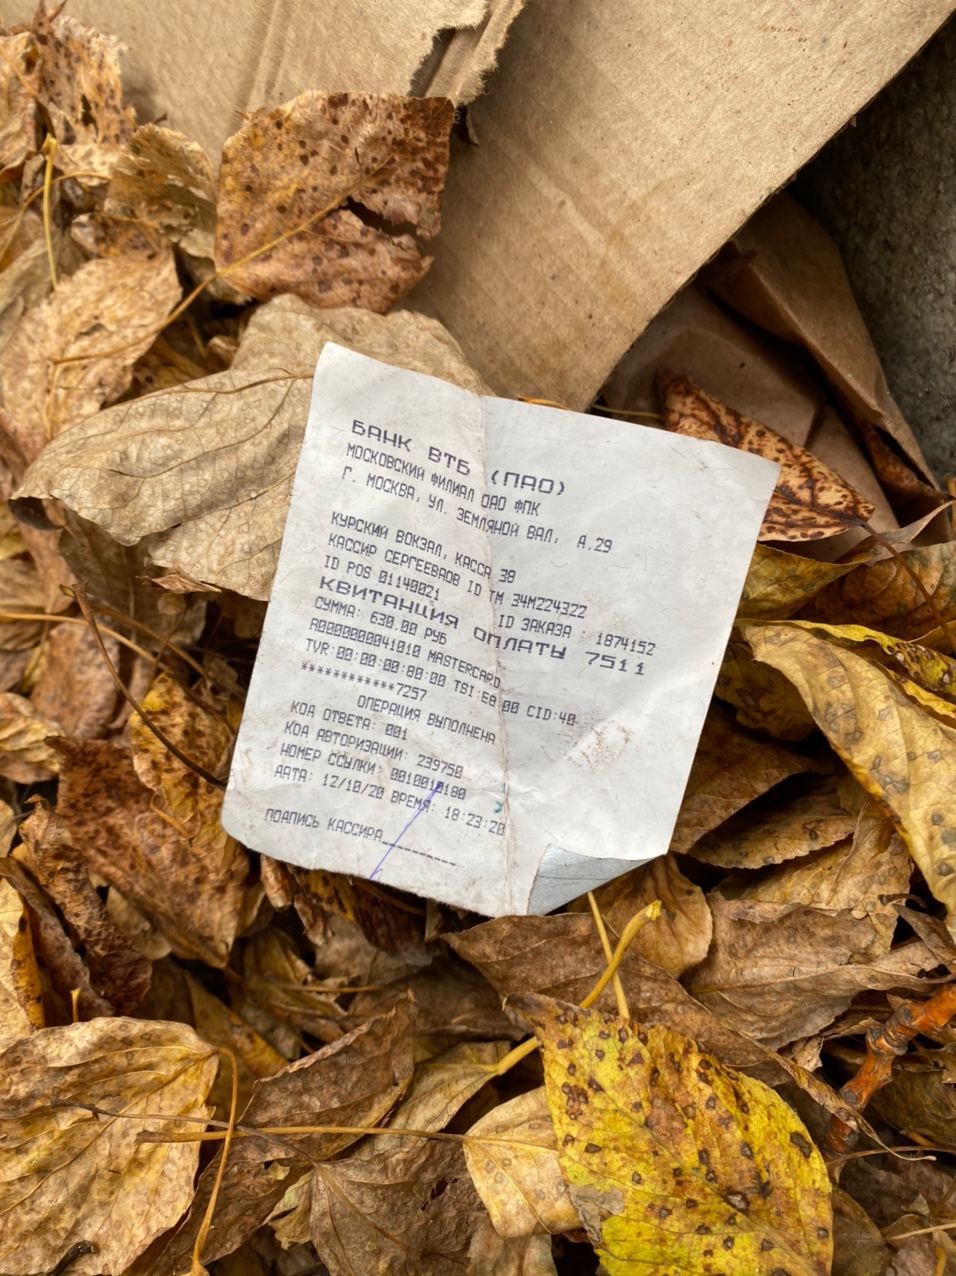 БАНК ВТБ (ПАО)
МОСКОВСКИЙ ФИЛИАЛ ОАО ФПК
Г. МОСКВА, УЛ. ЗЕМЛЯНОЙ ВАЛ, Д.29
КУРСКИЙ ВОКЗАЛ, КАССА 38
КАССИР СЕРГЕЕВАОВ ID ТМ 34М224322
ID POS 01140021 ID ЗАКАЗА : 1874152
КВИТАНЦИЯ ОПЛАТЫ 7511
СУММА: 630.00 РУБ
A0000000041010 MASTERCARD
TVR:00:00:00:80:00 TSI:E8:00 CID:40
**********7257
ОПЕРАЦИЯ ВЫПОЛНЕНА
КОД ОТВЕТА: 001
КОД АВТОРИЗАЦИИ: 239750
НОМЕР ССЫЛКИ: 0010010180
ДАТА: 12/10/20 ВРЕМЯ: 18:23:20
ПОДПИСЬ КАССИРА__________